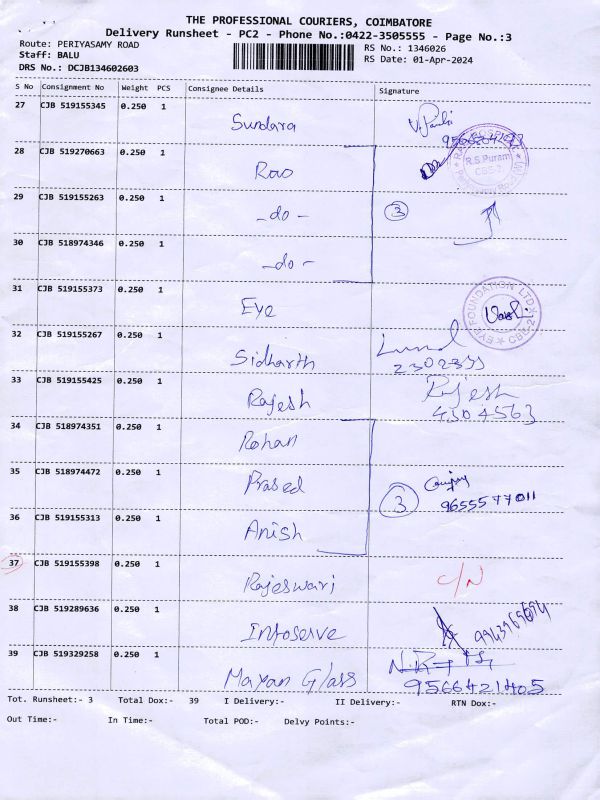 THE PROFESSIONAL COURIERS, COIMBATORE
Delivery Runsheet - PC2 - Phone No.:0422-3505555 - Page No.:3
Route: PERIYASAMY ROAD
RS No.: 1346026
Staff: BALU
RS Date: 01-Apr-2024
DRS No.: DCJB134602603
S No Consignment No Weight PCS Consignee Details Signature
27 CJB 519155345 0.250 1 Sundara
28 CJB 519270663 0.250 1 Rao
R.S.Puram
CBE-2
29 CJB 519155263 0.250 1 -do- 3
30 CJB 518974346 0.250 1 -do-
31 CJB 519155373 0.250 1 Eye
EYE FOUNDATION LTD CBE-2
32 CJB 519155267 0.250 1 Sidharth
33 CJB 519155425 0.250 1 Rajesh Rajesh
4304563
34 CJB 518974351 0.250 1 Rohan
35 CJB 518974472 0.250 1 Prased 3
9655577011
36 CJB 519155313 0.250 1 Anish
37 CJB 519155398 0.250 1 Rajeswari C/N
38 CJB 519289636 0.250 1 Infoserve
39 CJB 519329258 0.250 1 Mayan Glass
9566421405
Tot. Runsheet:- 3 Total Dox:- 39 I Delivery:- II Delivery:- RTN Dox:-
Out Time:- In Time:- Total POD:- Delvy Points:-